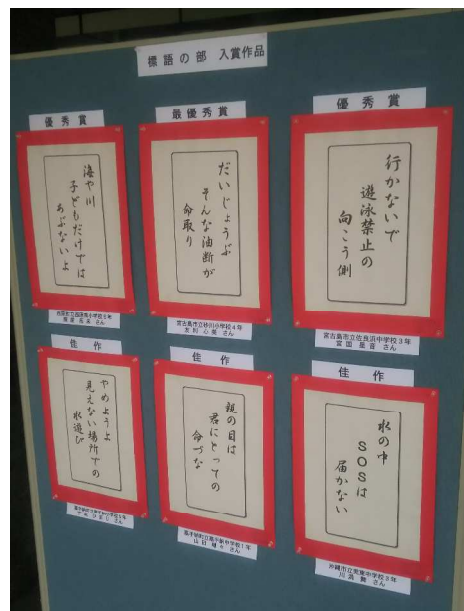 標語の部 入賞作品
優秀賞
海や川
子どもだけでは
あぶないよ
最優秀賞
だいじょうぶ
そんな油断が
命取り
宮古島市立砂川小学校4年
友利 心美 さん
優秀賞
行かないで
遊泳禁止の
向こう側
宮古島市立佐良浜中学校3年
さん
佳作
やめようよ
見えない場所での
水遊び
さん
佳作
親の目は
君にとっての
命づな
嘉手納町立嘉手納中学校1年
山田 さん
佳作
水の中
SOSは
届かない
沖縄市立美東中学校2年
川満 舞 さん